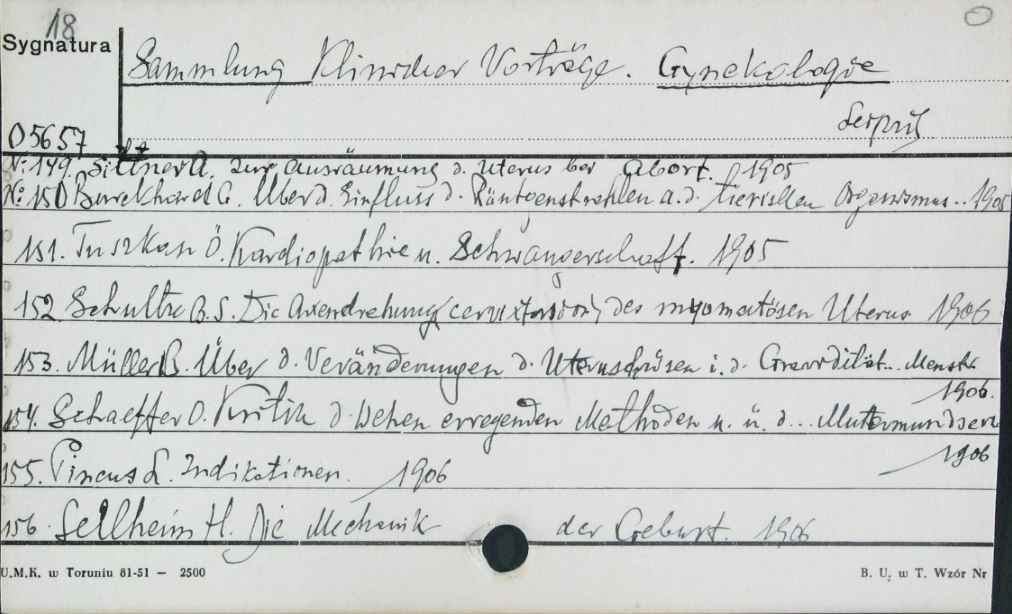 18
Sygnatura
Sammlung Klinischer Vorträge. Gynekologie
Leipzig
05657
No 149. Sittner A. Zur Ausräumung d. Uterus bei Abort. 1905
No 150 Burckhard G. Über d. Einfluss d. Röntgenstrahlen a.d. tierischen Organismus.. 1905
151. Tuszkai Ö. Kardiopathie u. Schwangerschaft. 1905
152 Schultze B.S. Die Axendrehung (cervixtorsion) des myomatösen Uterus 1906
153. Müller B. Über d. Veränderungen d. Uterusdrüsen i. d. Gravidität.. Menstr.
1906.
154. Schaeffer O. Kritik d. Wehen erregenden Methoden u. ü. d... Muttermundserw
1906
155. Pincus L. Indikationen. 1906
156. Sellheim H. Die Mechanik der Geburt. 1906
U.M.K. w Toruniu 81-51 — 2500
B. U. w T. Wzór Nr